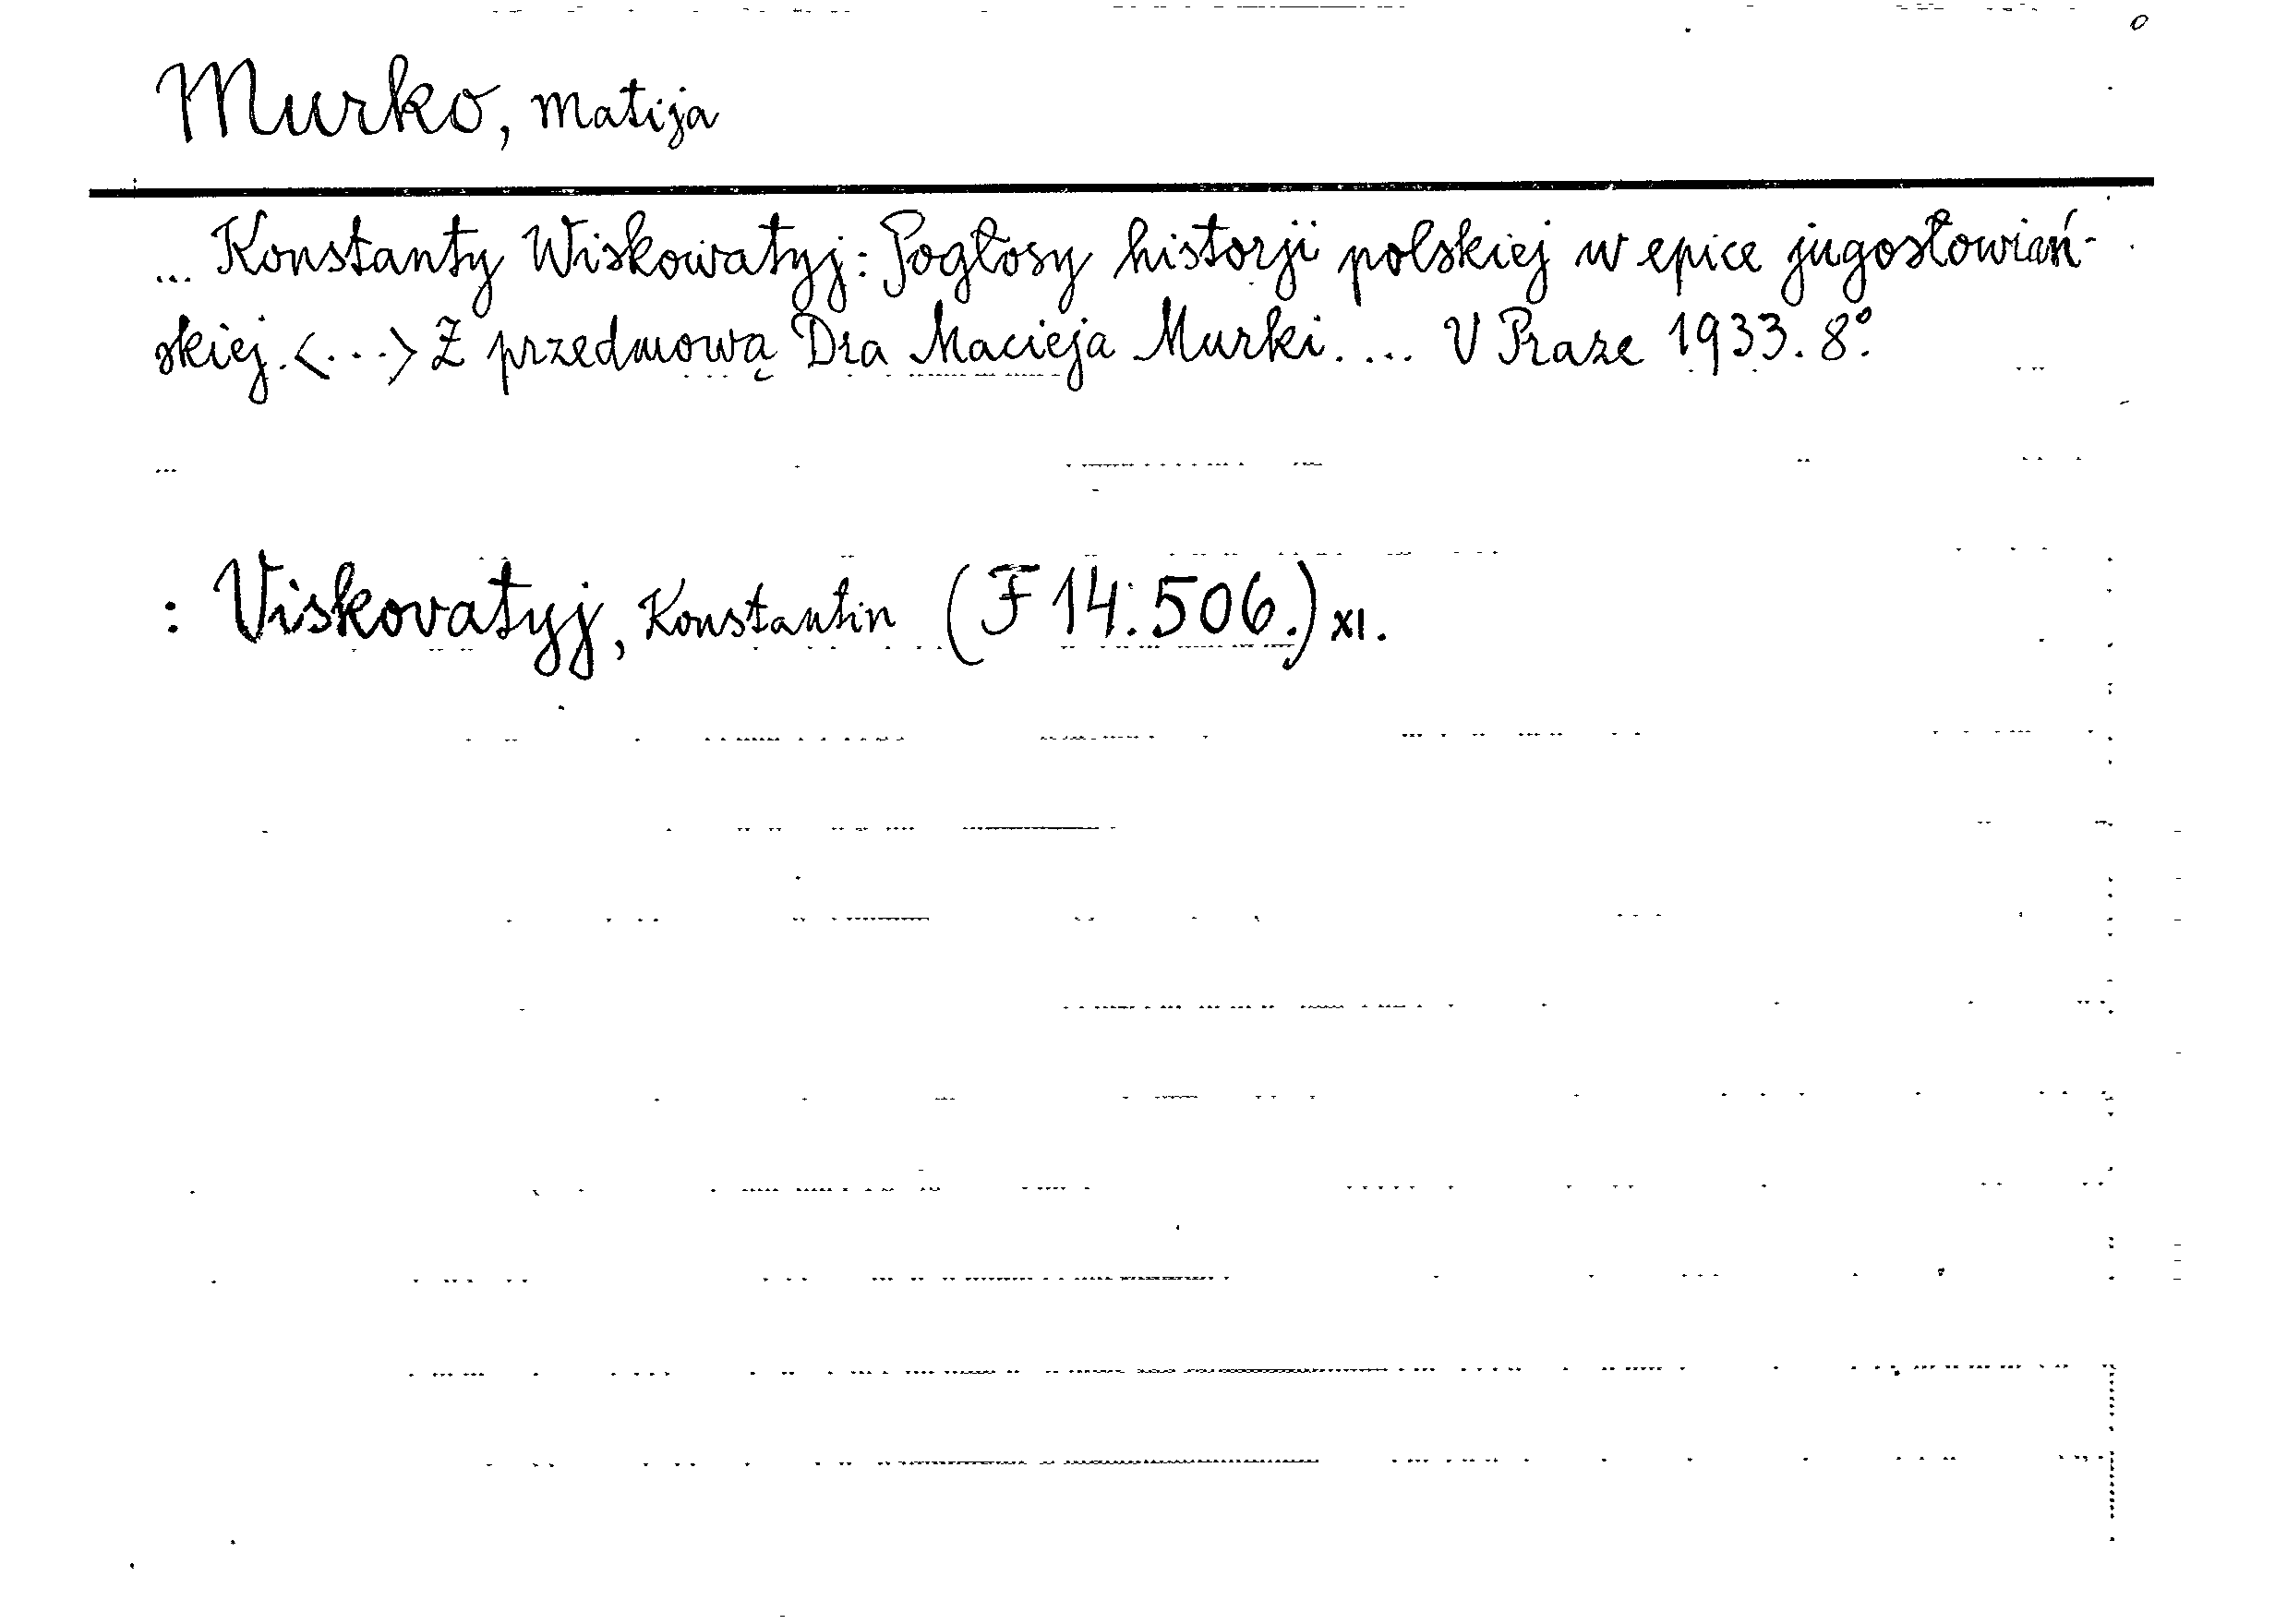 Murko, Matija
... Konstanty Wiskowatyj: Pogłosy historji polskiej w epice jugosłowiań-
skiej. <...> Z przedmową Dra Macieja Murki. ... V Praze 1933. 8°.
: Viskovatyj, Konstantin (F 14:506.) XI.